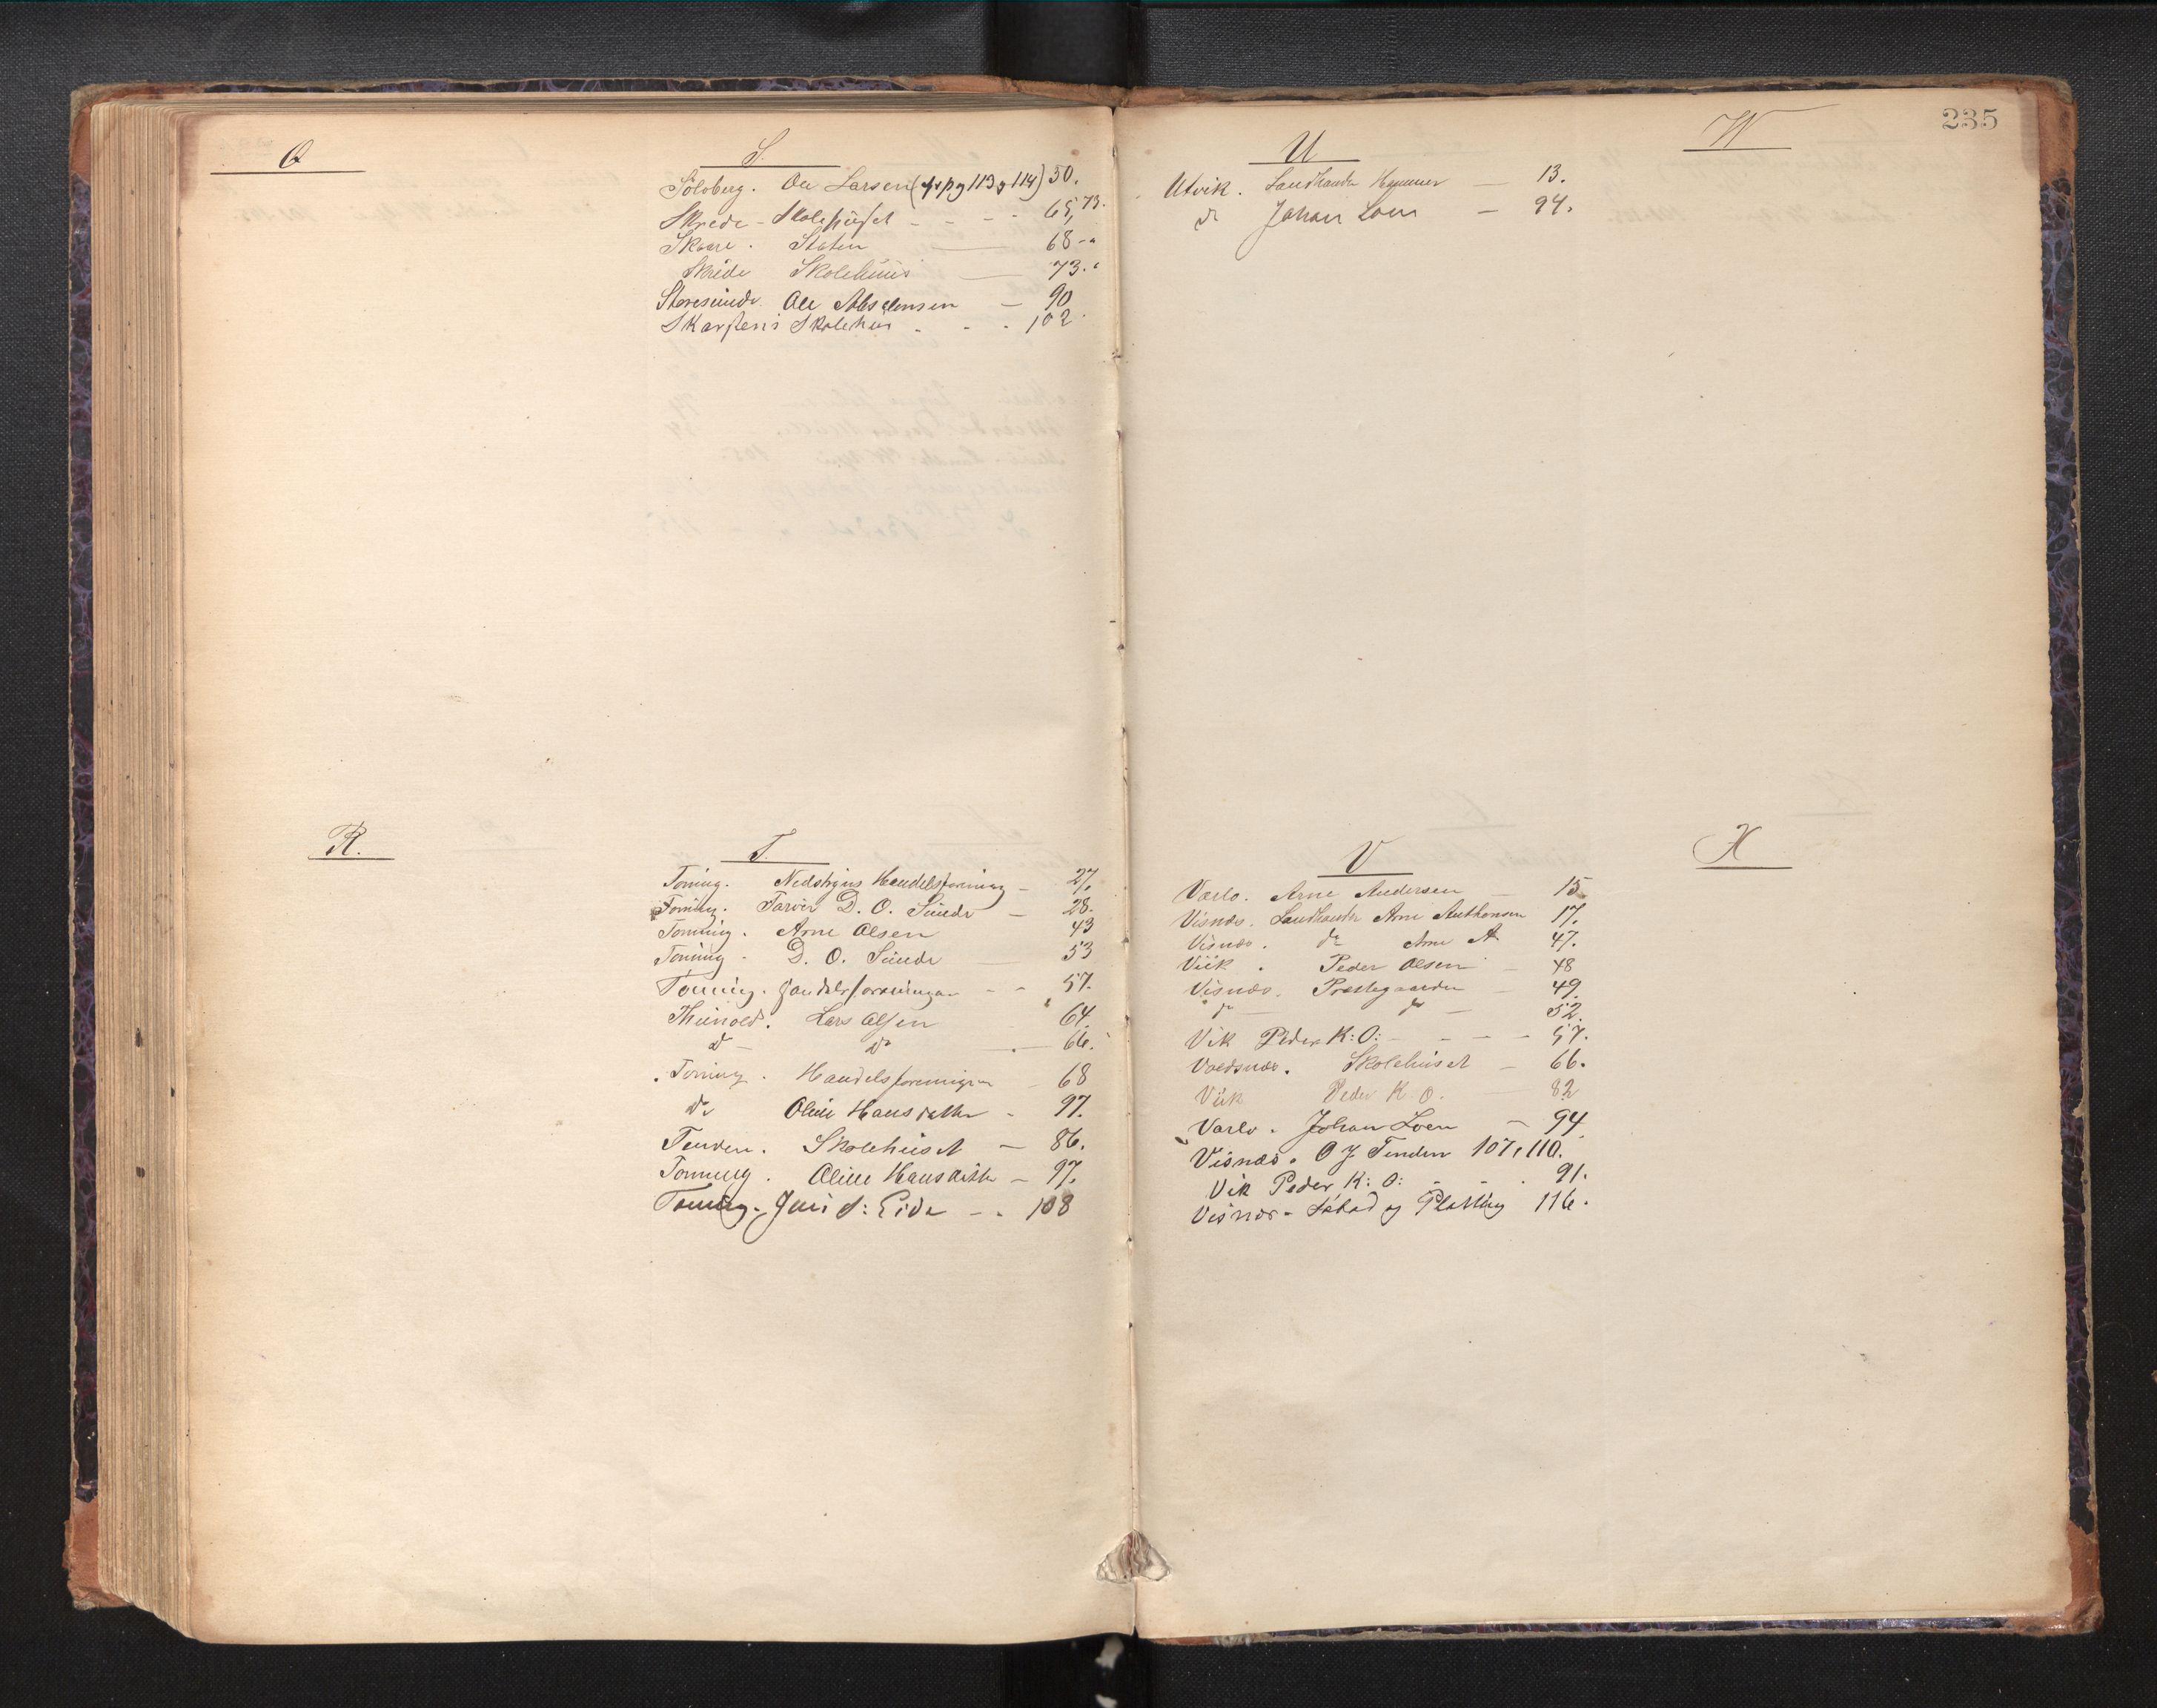 Q
S.
Sölvberg. Ole Larsen (cfr pg 113 og 114) 50.
Skrede - Skolehuset - - - - 65, 73.
Skaare. Staten — 68 - "
Skrede Skolehuus — 73. "
Storesunde. Ole Absalonsen — 90
Skarstens Skolehus - - . 102.
R.
T.
Toning. Nedstryns Handelsforening — 27.
Toning. Farver D. O. Sunde — 28.
Tonning. Arne Olsen 43
Toning. D. O. Sunde — 53
Tonning. Handelsforeningen - - 57.
Thunold. Lars Olsen 64.
do — do — 66.
Toning. Handelsforeningen — 68
do Oline Hansdatter - 97.
Tenden. Skolehuset — 86.
Tonning. Oline Hansdatter — 97.
Toning. Jens S: Eide - - 108
235
U
Utvik. Landhandler Hammer — 13.
do Johan Loen — 94.
W
V
Varlo. Arne Andersen — 15
Visnæs. Landhandler Arne Anthonsen 17.
Visnæs. do Arne A 47.
Viik. Peder Olsen — 48
Visnæs. Præstegaarden — 49.
do do — 52.
Vik Peder K: O: - - - - 57.
Voldsnæs. Skolehuset — 66.
Viik Peder K O. — 82
Varlo. Johan Loen — 94.
Visnæs. O J. Tenden 107, 110.
Vik Peder K: O: - - . 91.
Visnæs - Søbod og Platting 116.
X